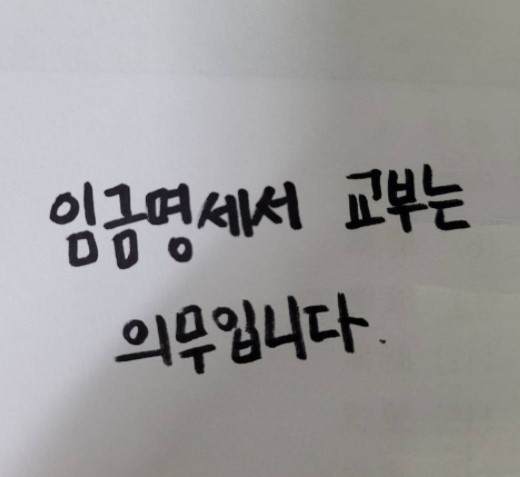 임금명세서 교부는
의무입니다.